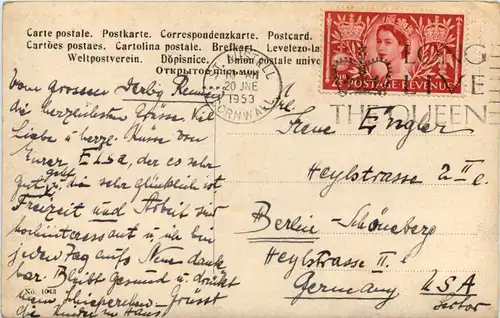 Carte postale. Postkarte. Correspondenzkarte. Postcard.
Cartões postaes. Cartolina postale. Brefkort. Levelezo-la
Weltpostverein. Dopisnice. Union postale unive
ОТКРЫТОЕ ПИСЬМО
20 JNE
1953
CORNWALL
LONG
LIVE
THE QUEEN
POSTAGE REVENUE
Vom grossen Derby Rennen
die herzlichsten Grüsse viel
liebe u. herzl. Küsse von
Eurer Elsa, der es sehr
gut geht u. die sehr glücklich ist
Freizeit und Arbeit sind
hochinteressant u. ich bin
jeden Tag aufs Neue dank
bar. Bleibt Gesund u. drückt
Grüsst
die Kinder im Haus
No. 1043
Irene Engler
Heylstrasse
Berlin - Schöneberg
Heylstrasse II. e
Germany USA
Sector